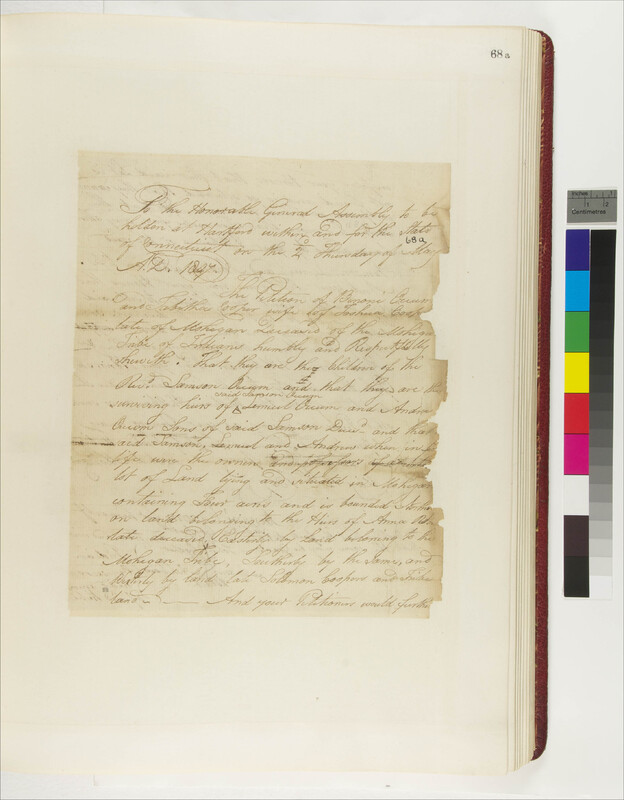 68a
To the Honorable General Assembly to be
holden at Hartford within and for the State
68a
of Connecticut on the 2d Thursday of May
A.D. 1827
The Petition of Benoni Occum
and Tabitha Cooper wife of Joshua Coop
late of Mohegan Deceased of the Moheg
Tribe of Indians humbly and Respectfully
Sheweth: That they are the children of the
Revd Samson Occum and that they are the
said Samson Occum
surviving heirs of Lemuel Occum and Andrew
Occum Sons of said Samson Decd and that
said Samson, Lemuel and Andrew when in
life were the owners
lot of Land lying and situated in Mohegan
containing four acres and is bounded Norther
on land belonging to the Heirs of Anna
late Deceased Easterly by Land belonging to the
Mohegan Tribe, Southerly by the Same, and
by land late Solomon Coopers and Tribe
land — And your Petitioners would further
Centimetres